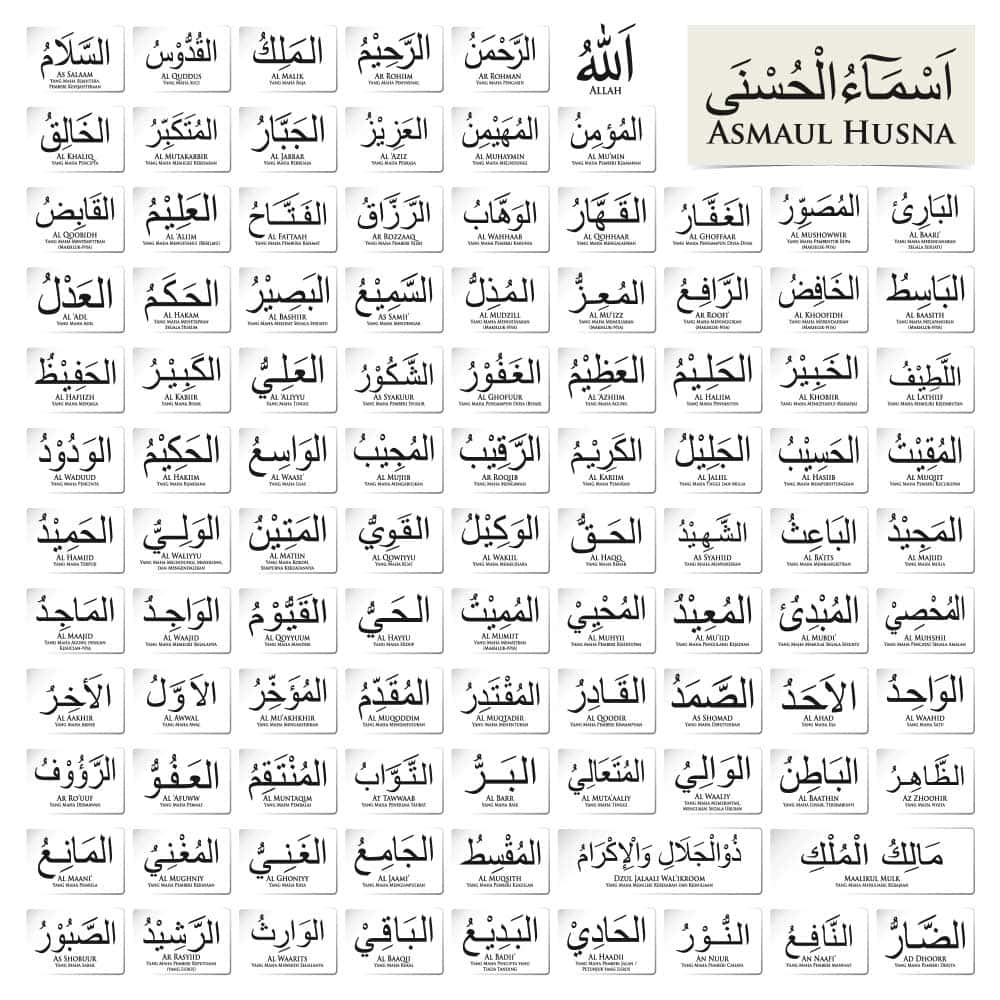 اَسْمَآءُالْحُسْنَى
ASMAUL HUSNA
اَللّٰهُ
ALLAH
الرَّحْمَنُ
AR ROHMAN
YANG MAHA PENGASIH
الرَّحِيْمُ
AR ROHIIM
YANG MAHA PENYAYANG
المَلِكُ
AL MALIK
YANG MAHA RAJA
القُدُّوْسُ
AL QUDDUS
YANG MAHA SUCI
السَّلَامُ
AS SALAAM
YANG MAHA SEJAHTERA,
PEMBERI KESEJAHTERAAN
المُؤمِنُ
AL MU'MIN
YANG MAHA PEMBERI KEAMANAN
المُهَيْمِنُ
AL MUHAYMIN
YANG MAHA MELINDUNGI
العَزِيْزُ
AL 'AZIZ
YANG MAHA PERKASA
الجَبَّارُ
AL JABBAR
المُتَكَبِّرُ
AL MUTAKABBIR
YANG MAHA MEMILIKI KEBESARAN
الخَالِقُ
AL KHALIQ
YANG MAHA PENCIPTA
البَارِئُ
AL BAARI'
المُصَوِّرُ
AL MUSHOWWIR
YANG MAHA PEMBENTUK RUPA
(MAKHLUK-NYA)
الغَفَّارُ
AL GHOFFAAR
YANG MAHA PENGAMPUN DOSA DOSA
القَهَّارُ
AL QOHHAAR
YANG MAHA MENGALAHKAN
الوَهَّابُ
AL WAHHAAB
YANG MAHA PEMBERI KARUNIA
الرَّزَّاقُ
AR ROZZAAQ
YANG MAHA PEMBERI REZKI
الفَتَّاحُ
AL FATTAAH
YANG MAHA PEMBUKA RAHMAT
العَلِيْمُ
AL 'ALIIM
القَابِضُ
AL QOOBIDH
YANG MAHA MENYEMPITKAN
(MAKHLUK-NYA)
البَاسِطُ
AL BAASITH
YANG MAHA MELAPANGKAN
(MAKHLUK-NYA)
الخَافِضُ
AL KHOOFIDH
YANG MAHA MERENDAHKAN
(MAKHLUK-NYA)
الرَّافِعُ
AR ROOFI'
YANG MAHA MENINGGIKAN
(MAKHLUK-NYA)
المُعِزُّ
AL MU'IZZ
YANG MAHA MEMULIAKAN
(MAKHLUK-NYA)
المُذِلُّ
AL MUDZILL
YANG MAHA MENGHINAKAN
(MAKHLUK-NYA)
السَّمِيْعُ
AS SAMII'
YANG MAHA MENDENGAR
البَصِيْرُ
AL BASHIIR
YANG MAHA MELIHAT SEGALA SESUATU
الحَكَمُ
AL HAKAM
YANG MAHA MENETAPKAN
SEGALA HUKUM
العَدْلُ
AL 'ADL
YANG MAHA ADIL
اللَّطِيْفُ
AL LATHIIF
YANG MAHA MEMILIKI KELEMBUTAN
الخَبِيْرُ
AL KHOBIIR
YANG MAHA MENGETAHUI RAHASIA
الحَلِيْمُ
AL HALIIM
YANG MAHA PENYANTUN
العَظِيْمُ
AL 'AZHIIM
YANG MAHA AGUNG
الغَفُوْرُ
AL GHOFUUR
YANG MAHA PENGAMPUN DOSA (BESAR)
الشَّكُوْرُ
AS SYAKUUR
YANG MAHA PEMBERI SYUKUR
العَلِيُّ
AL 'ALIYYU
YANG MAHA TINGGI
الكَبِيْرُ
AL KABIIR
YANG MAHA BESAR
الحَفِيْظُ
AL HAFIIZH
YANG MAHA MENJAGA
المُقِيْتُ
AL MUQIIT
YANG MAHA PEMBERI KECUKUPAN
الحَسِيْبُ
AL HASIIB
YANG MAHA MEMPERHITUNGKAN
الجَلِيْلُ
AL JALIIL
YANG MAHA TINGGI DAN MULIA
الكَرِيْمُ
AL KARIIM
YANG MAHA PEMURAH
الرَّقِيْبُ
AR ROQIIB
YANG MAHA MENGAWASI
المُجِيْبُ
AL MUJIIB
YANG MAHA MENGABULKAN
الوَاسِعُ
AL WAASI'
YANG MAHA LUAS
الحَكِيْمُ
AL HAKIIM
YANG MAHA BIJAKSANA
الوَدُوْدُ
AL WADUUD
YANG MAHA PENCINTA
المَجِيْدُ
AL MAJIID
YANG MAHA MULIA
البَاعِثُ
AL BA'ITS
YANG MAHA MEMBANGKITKAN
الشَّهِيْدُ
AS SYAHIID
YANG MAHA MENYAKSIKAN
الحَقُّ
AL HAQQ
YANG MAHA BENAR
الوَكِيْلُ
AL WAKIIL
YANG MAHA MEMELIHARA
القَوِيُّ
AL QOWIYYU
YANG MAHA KUAT
المَتِيْنُ
AL MATIIN
YANG MAHA KOKOH,
SEMPURNA KEKUATANNYA
الوَلِيُّ
AL WALIYYU
YANG MAHA MELINDUNGI, MENOLONG,
DAN MENGENDALIKAN
الحَمِيْدُ
AL HAMIID
YANG MAHA TERPUJI
المُحْصِيْ
AL MUHSHII
YANG MAHA PENCATAT SEGALA AMALAN
المُبْدِئُ
AL MUBDI'
YANG MAHA MEMULAI SEGALA SESUATU
المُعِيْدُ
AL MU'IID
YANG MAHA PENGULANG KEJADIAN
المُحْيِيْ
AL MUHYII
YANG MAHA PEMBERI KEHIDUPAN
المُمِيْتُ
AL MUMIIT
YANG MAHA MEMATIKAN
(MAKHLUK-NYA)
الحَيُّ
AL HAYYU
YANG MAHA HIDUP
القَيُّوْمُ
AL QOYYUUM
YANG MAHA MANDIRI
الوَاجِدُ
AL WAAJID
YANG MAHA MEMILIKI SEGALANYA
المَاجِدُ
AL MAAJID
YANG MAHA AGUNG DENGAN
KESUCIAN-NYA
الوَاحِدُ
AL WAAHID
YANG MAHA SATU
الاَحَدُ
AL AHAD
YANG MAHA ESA
الصَّمَدُ
AS SHOMAD
YANG MAHA DIBUTUHKAN
القَادِرُ
AL QOODIR
YANG MAHA PEMBERI KEMAMPUAN
المُقْتَدِرُ
AL MUQTADIR
YANG MAHA MENENTUKAN
المُقَدِّمُ
AL MUQODDIM
YANG MAHA MENDAHULUKAN
المُؤَخِّرُ
AL MU'AKHKHIR
YANG MAHA MENGAKHIRKAN
الاَوَّلُ
AL AWWAL
YANG MAHA AWAL
الأَخِرُ
AL AAKHIR
YANG MAHA AKHIR
الظَّاهِرُ
AZ ZHOOHIR
YANG MAHA NYATA
البَاطِنُ
AL BAATHIN
YANG MAHA GHAIB, TERSEMBUNYI
الوَالِيُ
AL WAALIY
YANG MAHA MEMERINTAH,
MENGUASAI SEGALA URUSAN
المُتَعَالِيُ
AL MUTA'AALIY
YANG MAHA TINGGI
البَرُّ
AL BARR
YANG MAHA BAIK
التَّوَّابُ
AT TAWWAAB
YANG MAHA PENERIMA TAUBAT
المُنْتَقِمُ
AL MUNTAQIM
YANG MAHA PEMBALAS
العَفُوُّ
AL 'AFUWW
YANG MAHA PEMAAF
الرَّؤُوْفُ
AR RO'UUF
YANG MAHA DERMAWAN
مَالِكُ الْمُلْكِ
MAALIKUL MULK
YANG MAHA MENGUASAI KERAJAAN
ذُوْالجَلَالِ وَالْاِكْرَامُ
DZUL JALAALI WAL'IKROOM
YANG MAHA MEMILIKI KEBESARAN DAN KEMULIAAN
المُقْسِطُ
AL MUQSITH
YANG MAHA PEMBERI KEADILAN
الجَامِعُ
AL JAAMI'
YANG MAHA MENGUMPULKAN
الغَنِيُّ
AL GHONIYY
YANG MAHA KAYA
المُغْنِيُ
AL MUGHNIY
YANG MAHA PEMBERI KEKAYAAN
المَانِعُ
AL MAANI'
YANG MAHA PEMBELA
الضَّارُّ
AD DHOORR
YANG MAHA PEMBERI DERITA
النَّافِعُ
AN NAAFI'
YANG MAHA PEMBERI MANFAAT
النُّوْرُ
AN NUUR
YANG MAHA PEMBERI CAHAYA
الحَادِيْ
AL HAADII
YANG MAHA PEMBERI JALAN /
PETUNJUK YANG LURUS
البَدِيْعُ
AL BADII'
YANG MAHA PENCIPTA YANG
TIADA TANDING
البَاقِيْ
AL BAAQII
YANG MAHA KEKAL
الوَارِثُ
AL WAARITS
YANG MAHA MEWARISI SEGALANYA
الرَّشِيْدُ
AR RASYIID
YANG MAHA PEMBERI KEPUTUSAN
(YANG LURUS)
الصَّبُوْرُ
AS SHOBUUR
YANG MAHA SABAR